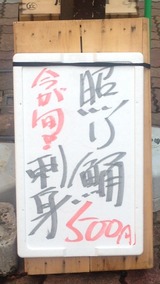 照り鯒
今が旬!刺身
500円